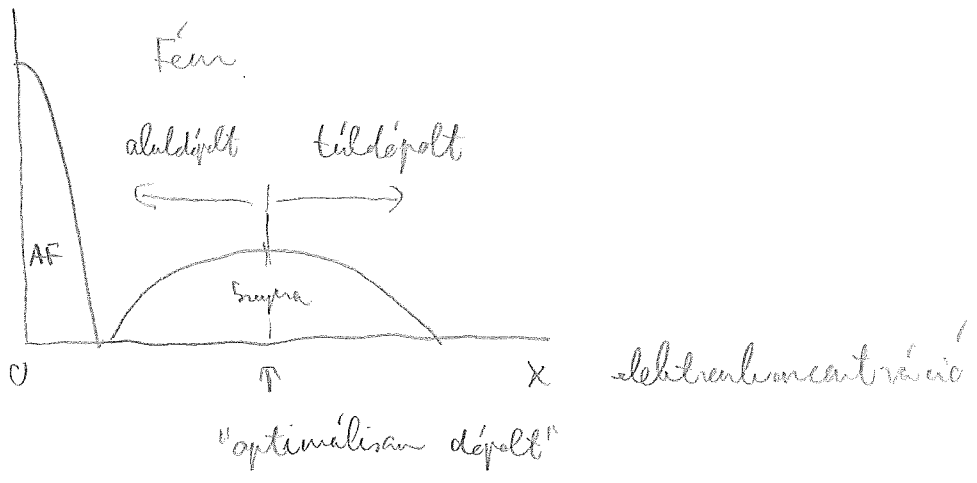 Fém
aluldópolt túldópolt
AF
Szupra
0 x elektronkoncentráció
"optimálisan dópolt"